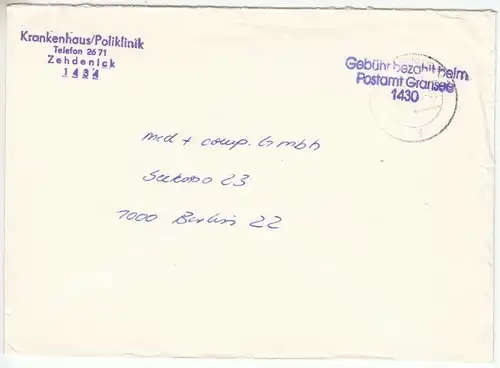 Krankenhaus/Poliklinik
Telefon 26 71
Zehdenick
1434
Gebühr bezahlt beim
Postamt Gransee
1430
med + comp. GmbH
23
1000 Berlin 22